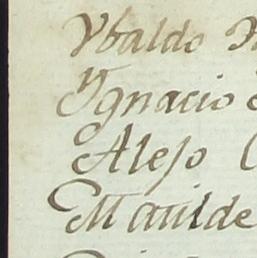 Ybaldo
Ygnacio
Alejo
Matilde